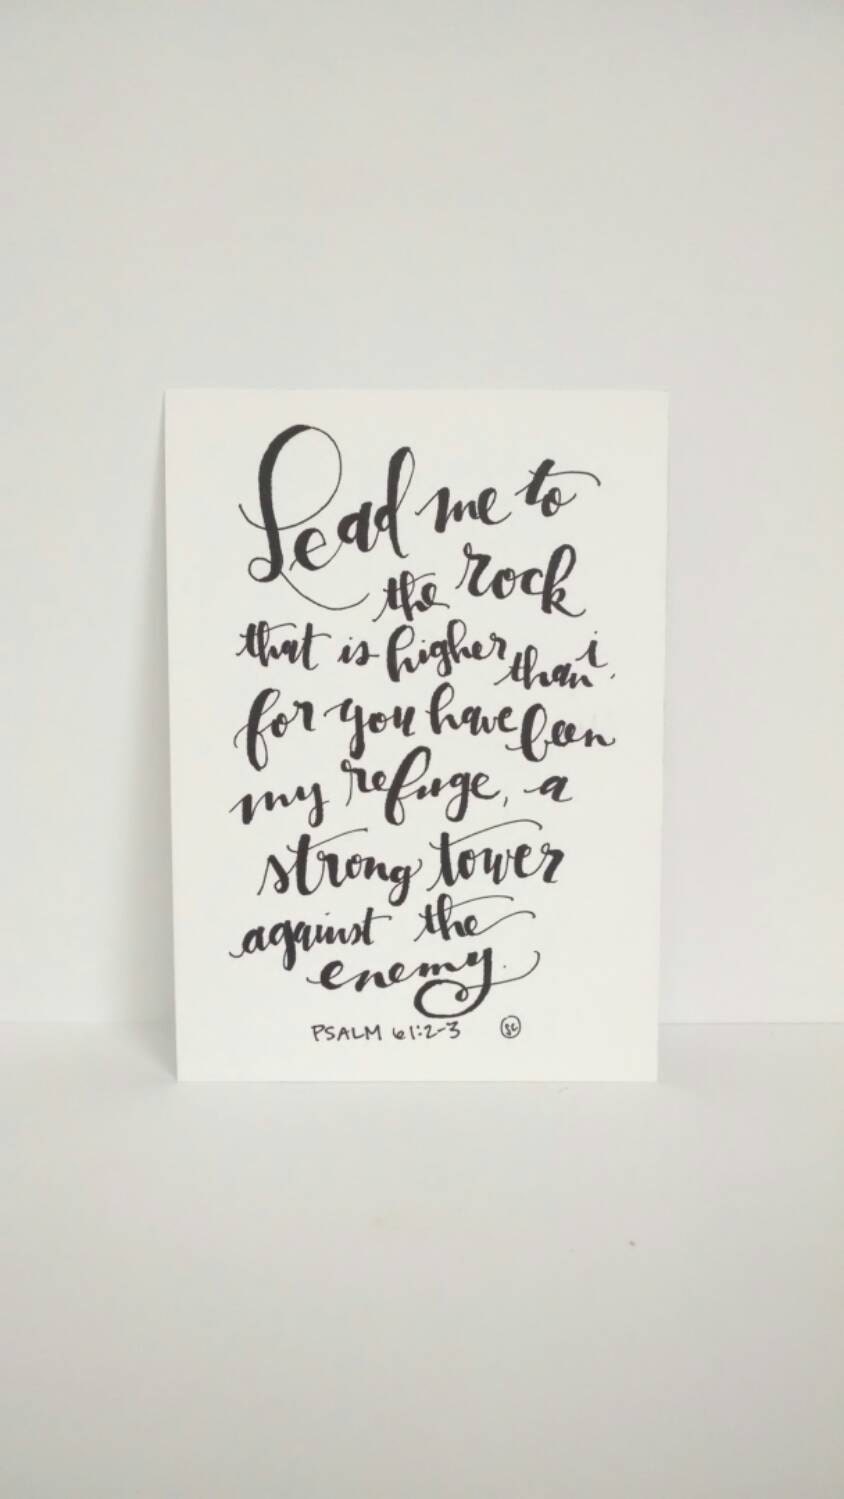 Lead me to
the rock
that is higher than i.
for you have been
my refuge, a
strong tower
against the
enemy.
PSALM 61:2-3 SC